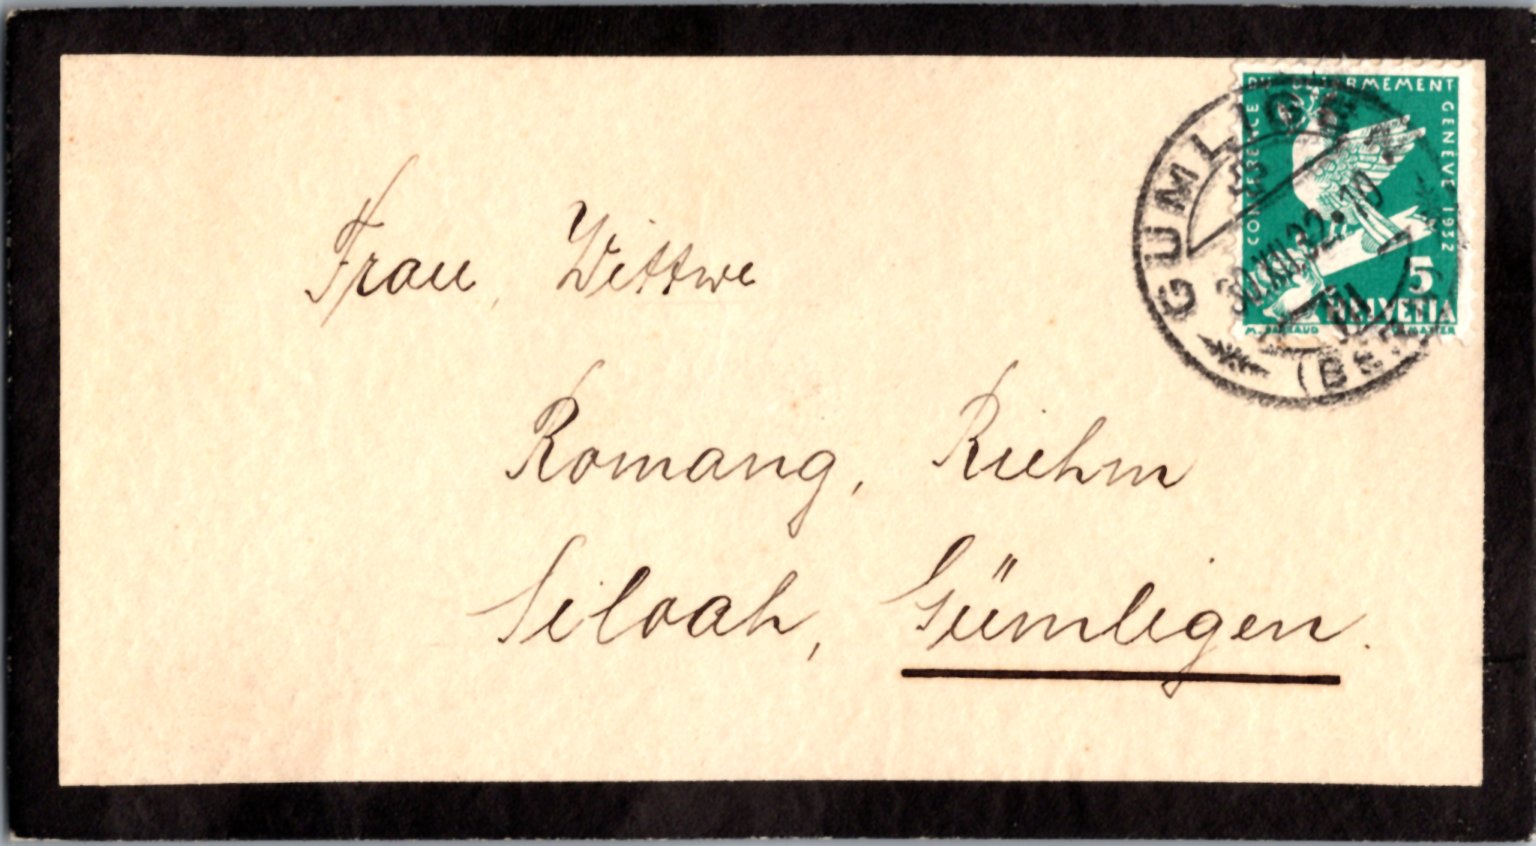 CONFERENCE DU DESARMEMENT GENEVE 1932
5
HELVETIA
GÜMLIGEN
30.XII.32.10
(BERN)
Frau Wittwe
Romang, Riehm
Siloah, Gümligen.